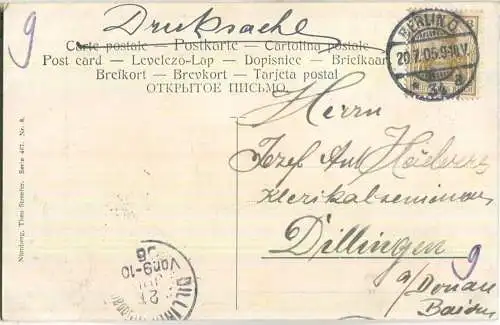 9
Drucksache
Carte postale — Postkarte — Cartolina postale
Post card — Levelező-Lap — Dopisnice — Briefkaar
Brefkort — Brevkort — Tarjeta postal
ОТКРЫТОЕ ПИСЬМО.
BERLIN O.
20.7.05.9-10V.
* 34 a
Herrn
Josef Ant
Klerikalseminar
Dillingen
9
a/Donau
Nürnberg, Theo Stroefer. Serie 467. Nr. 8.
DILLIN
Vor.9-10
21
JUL
05